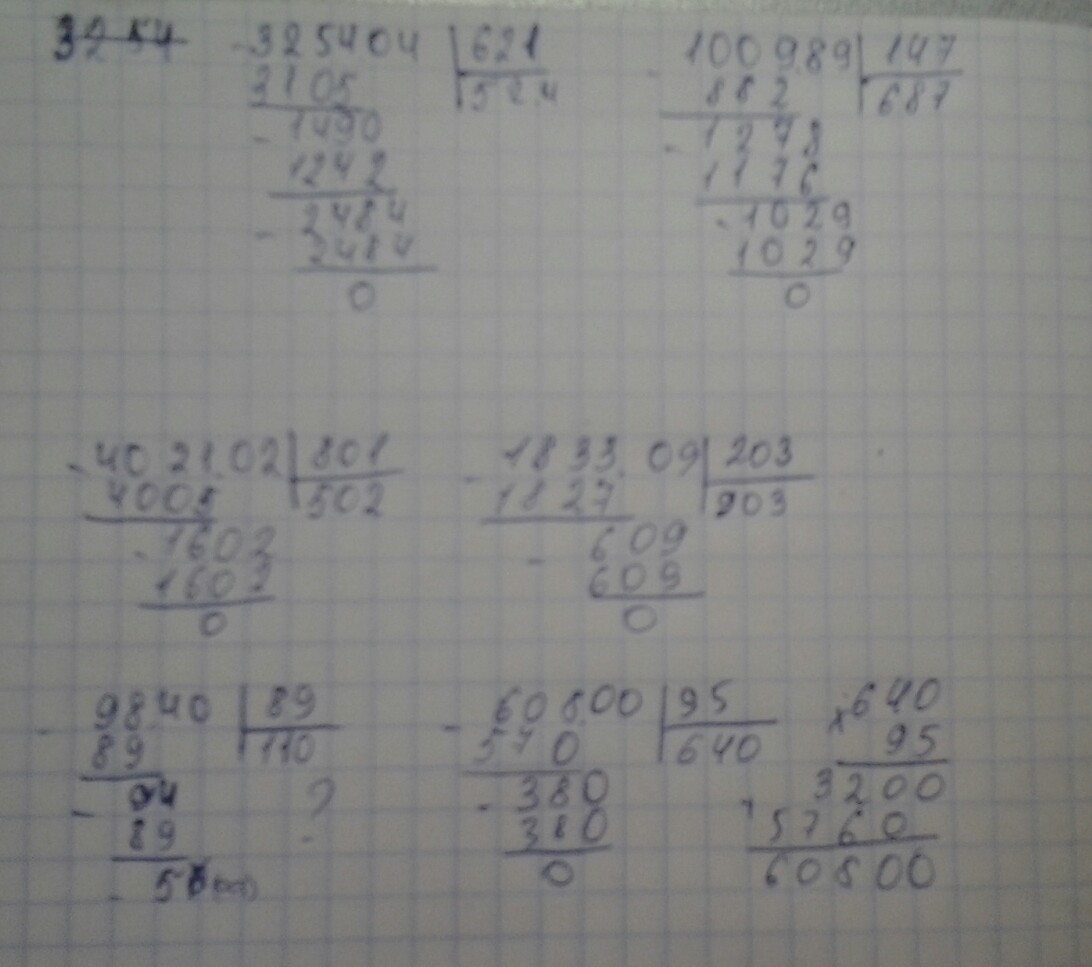 3254
- 325404 | 621
3105 | 524
- 1490
1242
- 2484
2484
0
- 100989 | 147
882 | 687
- 1278
1176
- 1029
1029
0
- 402102 | 801
4005 | 502
- 1602
1602
0
- 183309 | 203
1827 | 903
- 609
609
0
- 9840 | 89
89 | 110
- 94 ?
89
- 5
- 60800 | 95
570 | 640
- 380
380
0
x 640
95
+ 3200
5760
60800